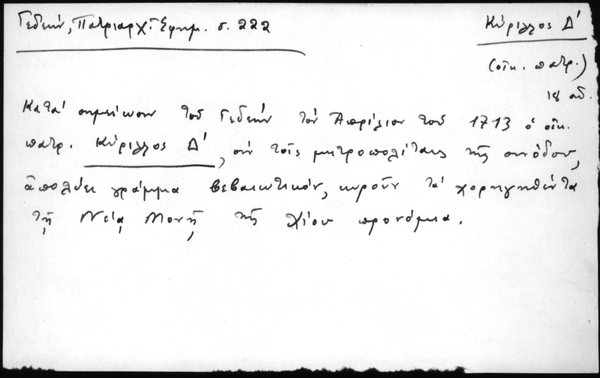 Γεδεών, Πατριαρχ. Εφημ. σ. 222
Κύριλλος Δ'
(οἰκ. πατρ.)
18 αἰ.
Κατά σημείωσιν τοῦ Γεδεών τόν Ἀπρίλιον τοῦ 1713 ὁ οἰκ.
πατρ. Κύριλλος Δ', σύν τοῖς μητροπολίταις τῆς συνόδου,
ἀπολύει γράμμα βεβαιωτικόν, κυροῦν τά χορηγηθέντα
τῇ Νέᾳ Μονῇ τῆς Χίου προνόμια.